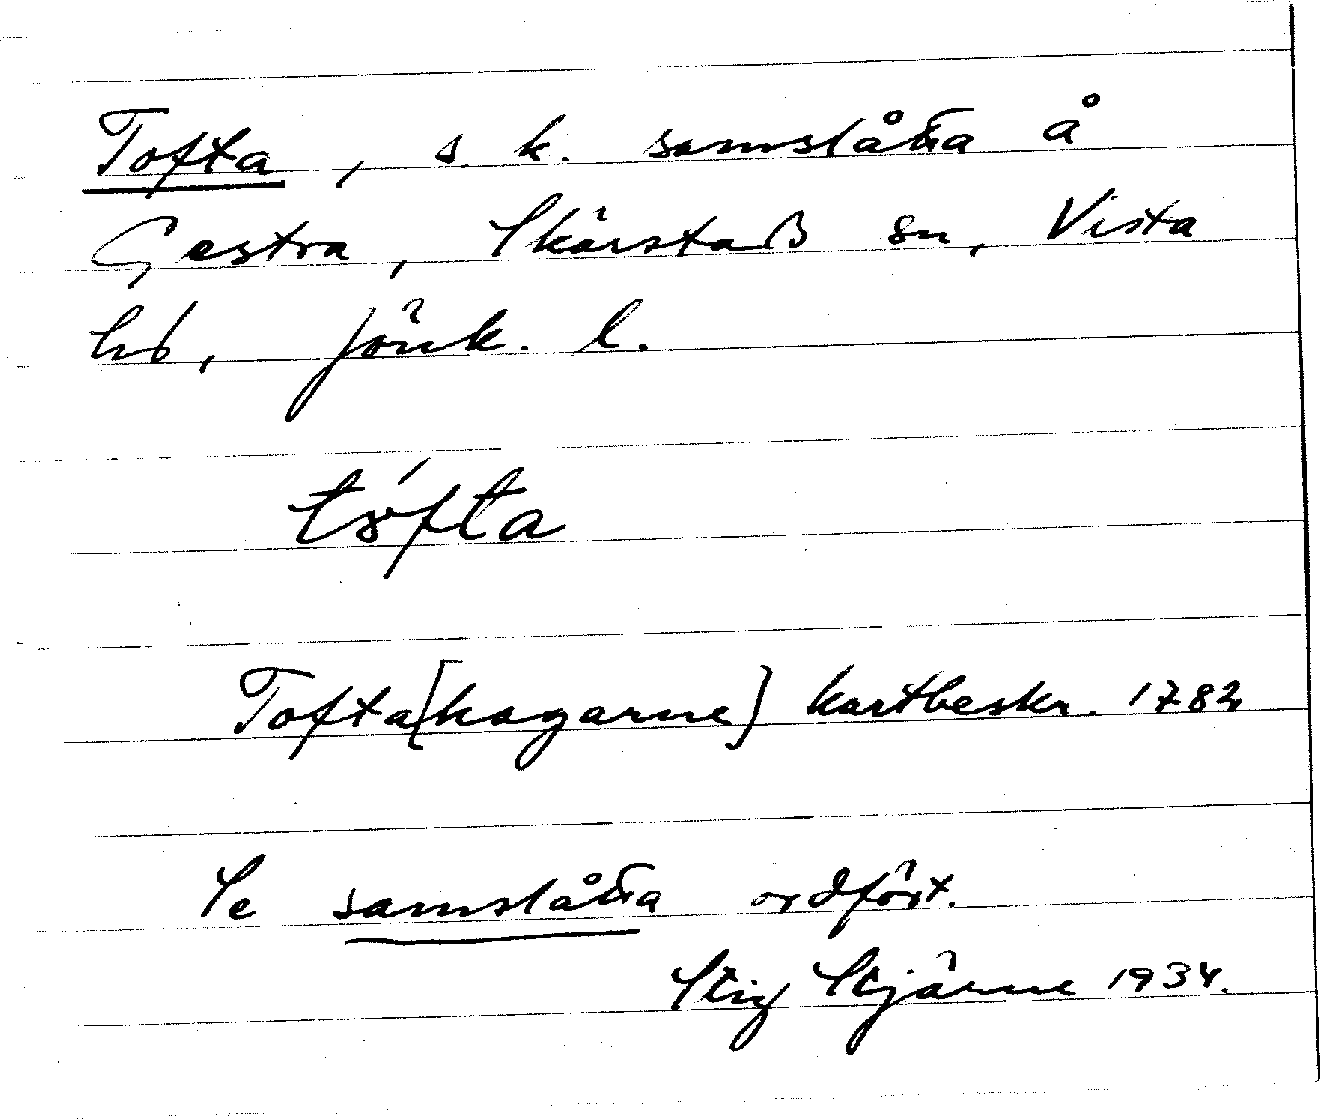 Tofta, s. k. samslåtta å
Gestra, Skärstads sn, Vista
hd, Jönk. l.
tófta
Tofta[hagarne] kartbeskr. 1782
Se samslåtta ordfört.
Stig Stjärne 1934.